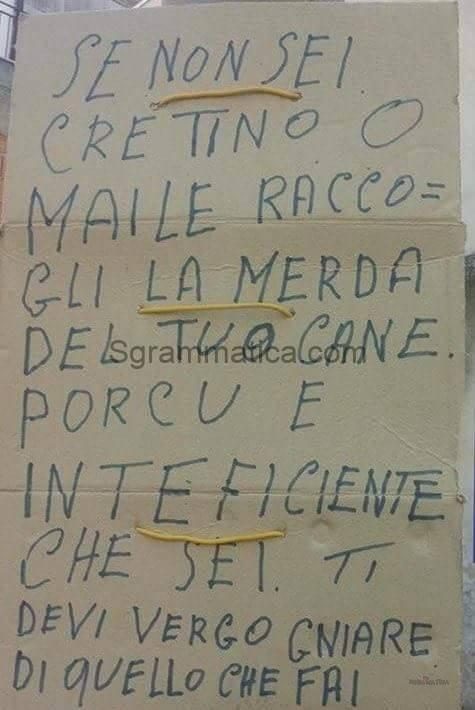 SE NON SEI.
CRETINO O
MAILE RACCO=
GLI LA MERDA
DEL TUO CANE.
Sgrammatica.com
PORCU E
INTEFICIENTE
CHE SEI. TI
DEVI VERGOGNIARE
DI QUELLO CHE FAI